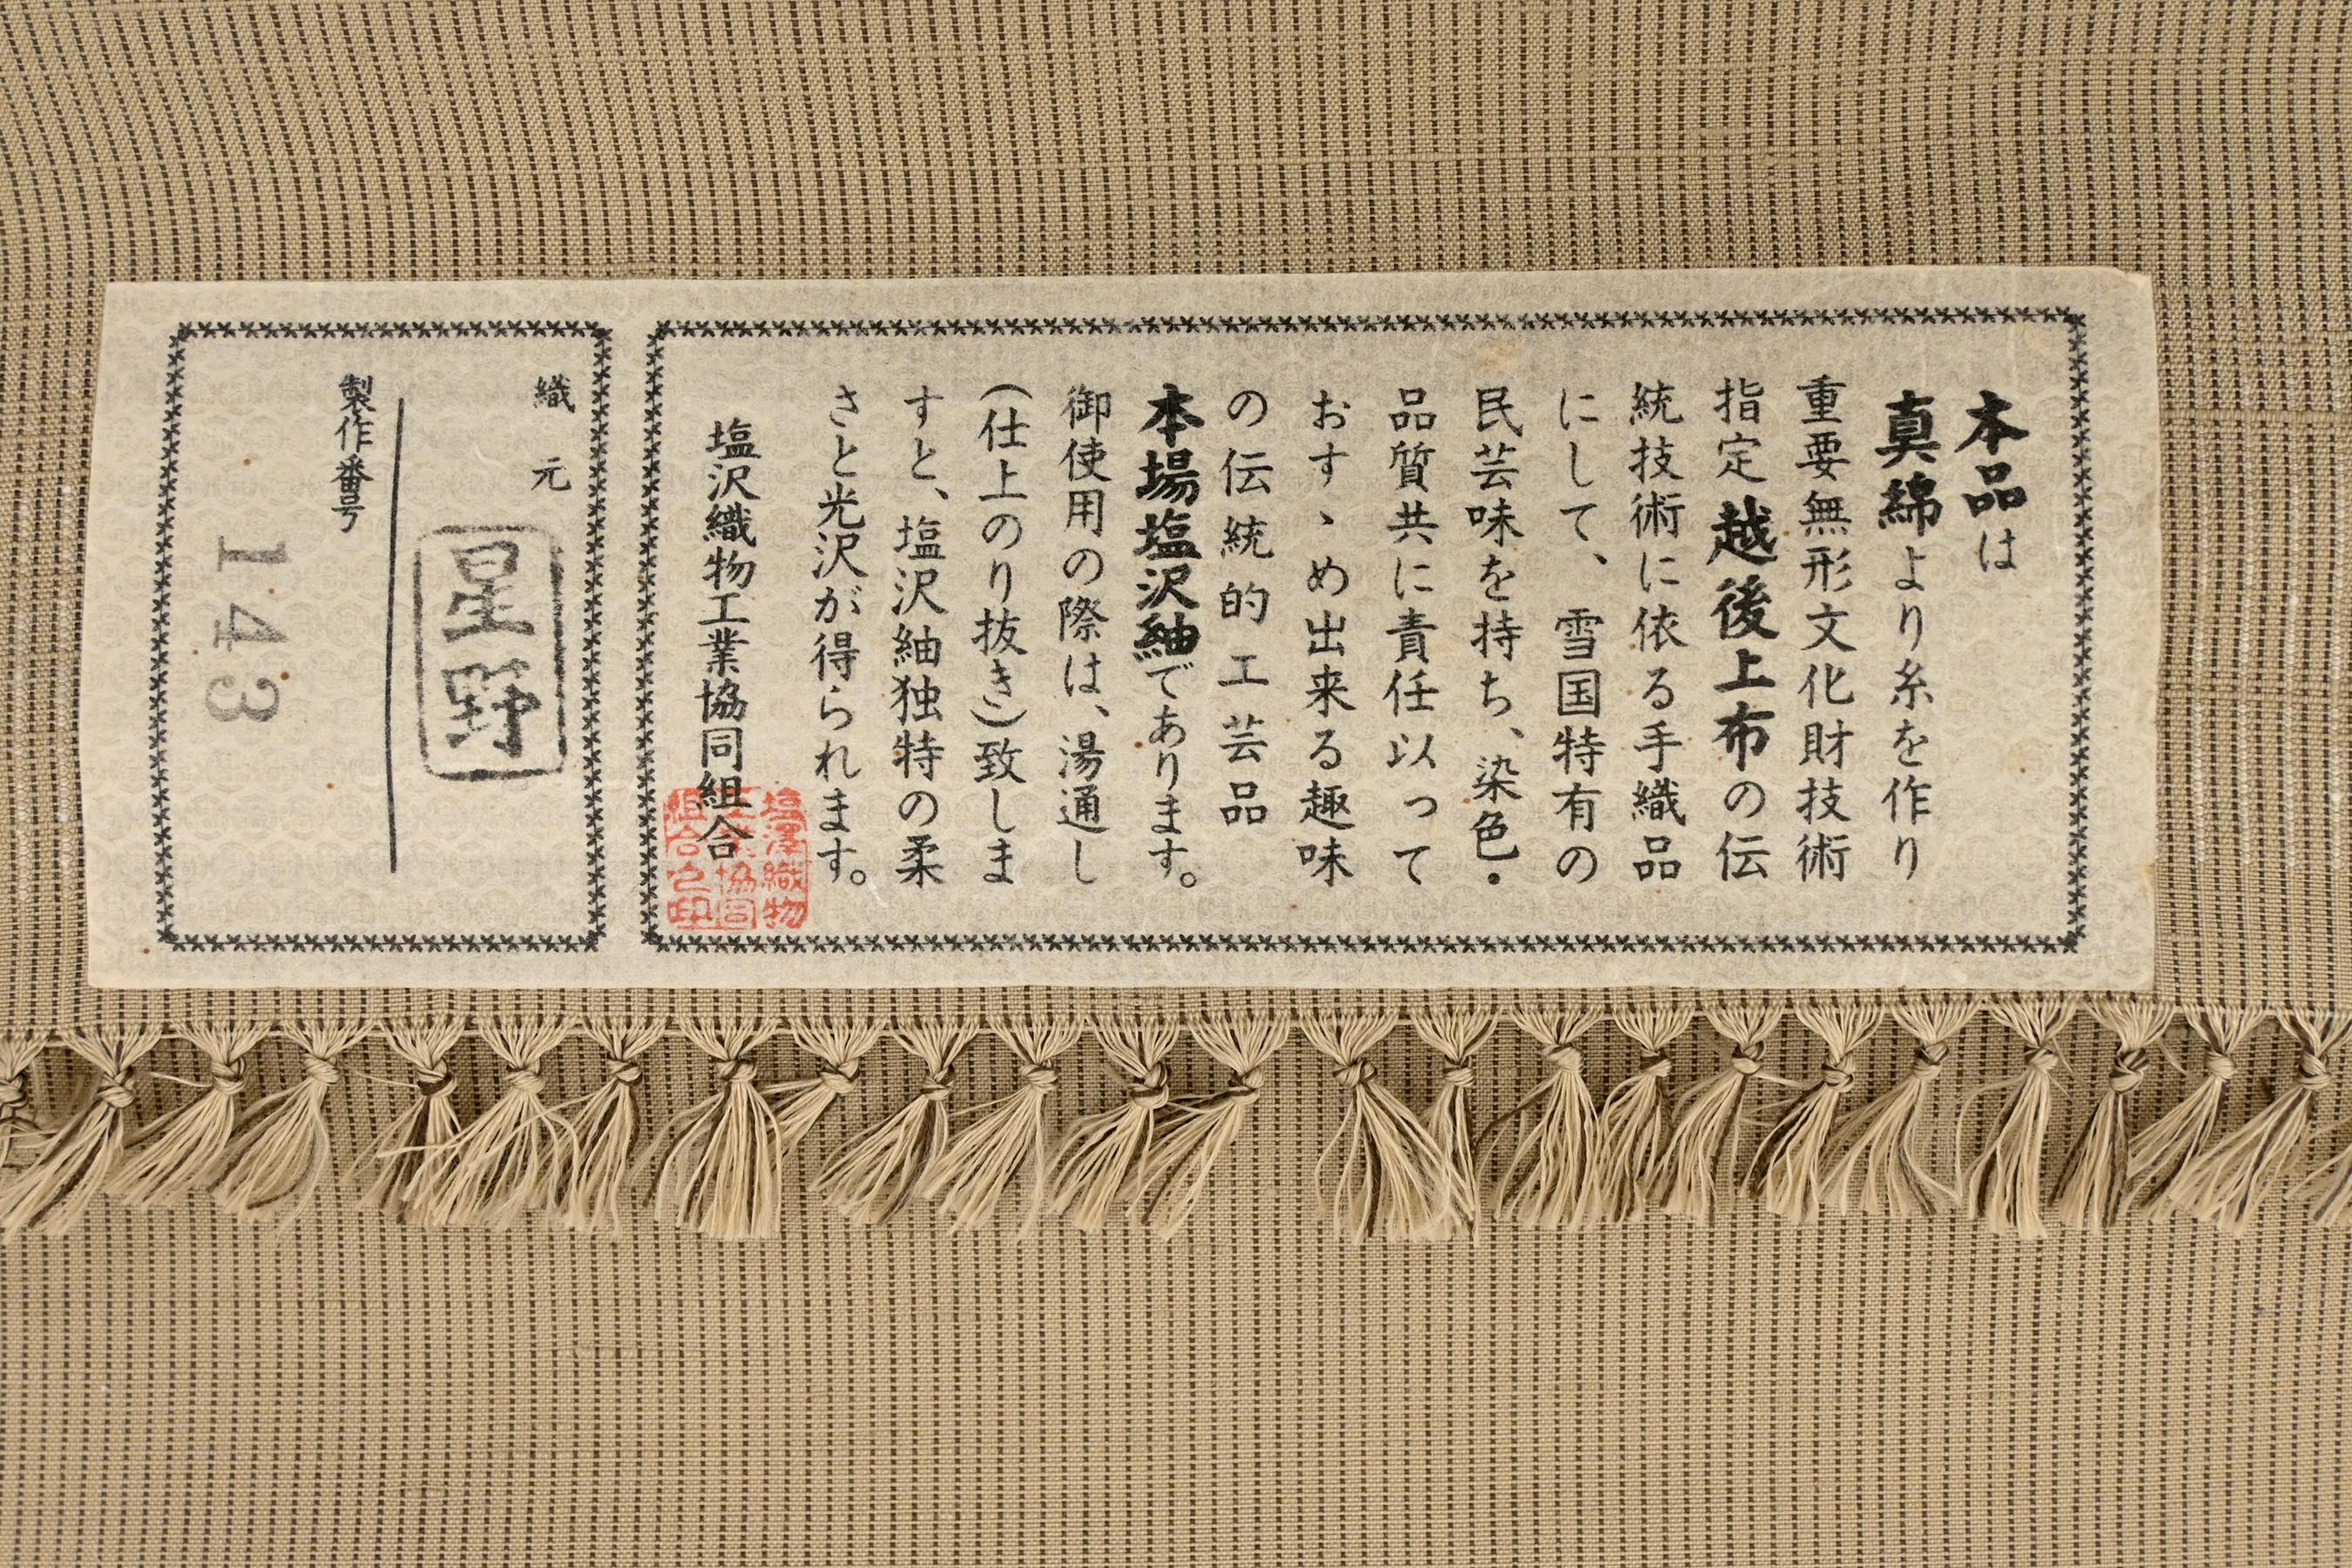 本品は
真綿より糸を作り
重要無形文化財技術
指定 越後上布の伝
統技術に依る手織品
にして、雪国特有の
民芸味を持ち、染色・
品質共に責任以って
おすゝめ出来る趣味
の伝統的工芸品
本場塩沢紬であります。
御使用の際は、湯通し
(仕上のり抜き)致しま
すと、塩沢紬独特の柔
さと光沢が得られます。
塩沢織物工業協同組合
塩澤織物
工業協同
組合之印
織元
星野
製作番号
143